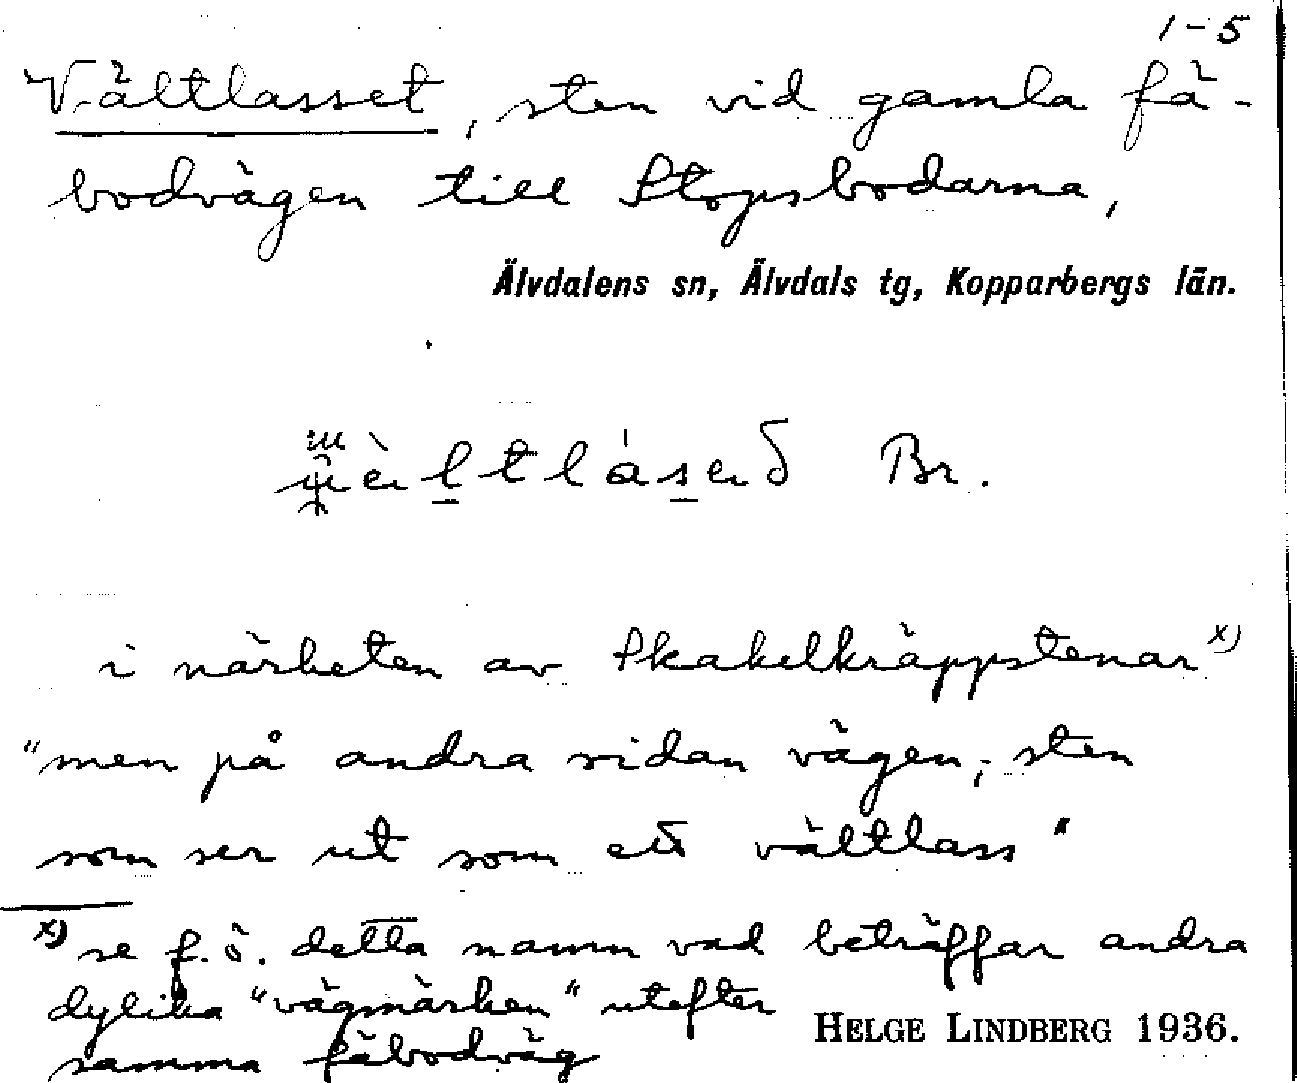 1-5
Vältlasset, sten vid gamla fä-
bodvägen till Stopsbodarna,
Älvdalens sn, Älvdals tg, Kopparbergs län.
Br.
i närheten av Skakelkräppstenar x)
"men på andra sidan vägen; sten
som ser ut som ett vältlass"
x) se f.ö. detta namn vad beträffar andra
dylika "vägmärken" utefter
samma fäbodväg
HELGE LINDBERG 1936.